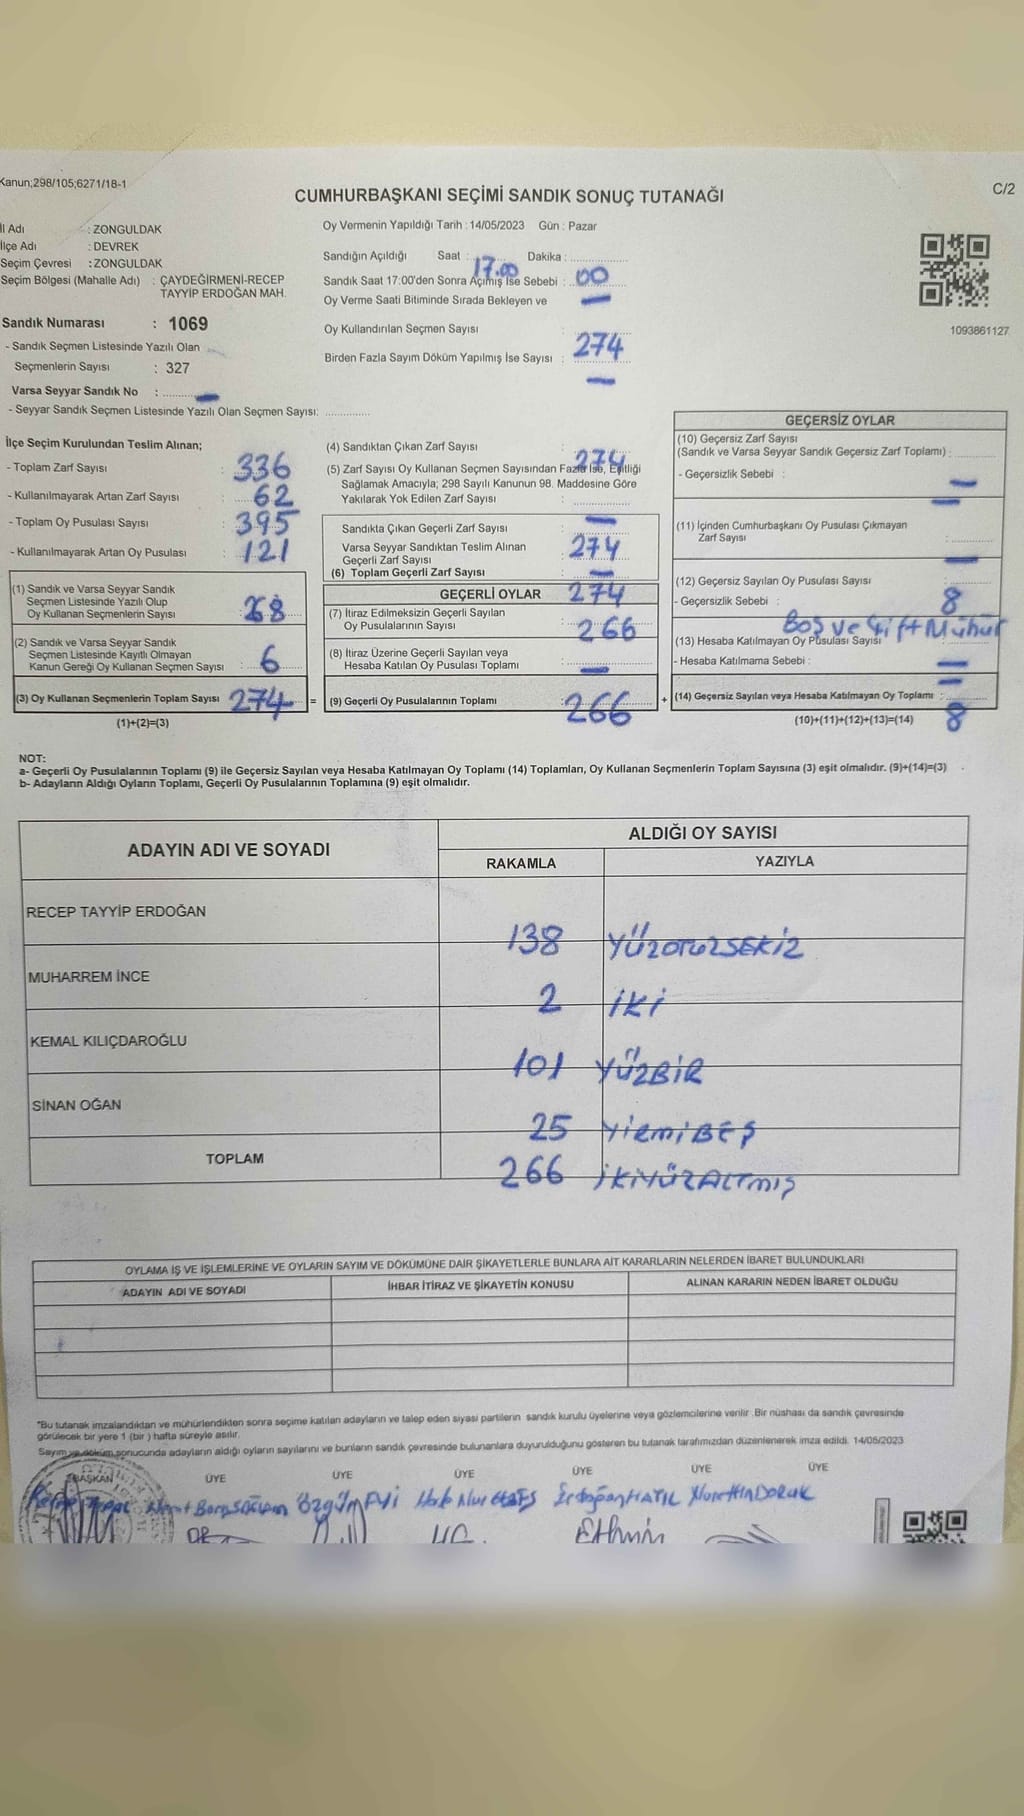 Kanun;298/105;6271/18-1
CUMHURBAŞKANI SEÇİMİ SANDIK SONUÇ TUTANAĞI
C/2
İl Adı : ZONGULDAK
İlçe Adı : DEVREK
Seçim Çevresi : ZONGULDAK
Seçim Bölgesi (Mahalle Adı) : ÇAYDEĞİRMENİ-RECEP
TAYYİP ERDOĞAN MAH.
Sandık Numarası : 1069
- Sandık Seçmen Listesinde Yazılı Olan
Seçmenlerin Sayısı : 327
Varsa Seyyar Sandık No : —
- Seyyar Sandık Seçmen Listesinde Yazılı Olan Seçmen Sayısı:
Oy Vermenin Yapıldığı Tarih : 14/05/2023 Gün : Pazar
Sandığın Açıldığı Saat : 17.00 Dakika : 00
Sandık Saat 17:00'den Sonra Açımış İse Sebebi : —
Oy Verme Saati Bitiminde Sırada Bekleyen ve
Oy Kullandırılan Seçmen Sayısı : 274
Birden Fazla Sayım Döküm Yapılmış İse Sayısı : —
1093861127
İlçe Seçim Kurulundan Teslim Alınan;
- Toplam Zarf Sayısı : 336
- Kullanılmayarak Artan Zarf Sayısı : 62
- Toplam Oy Pusulası Sayısı : 395
- Kullanılmayarak Artan Oy Pusulası : 121
(1) Sandık ve Varsa Seyyar Sandık
Seçmen Listesinde Yazılı Olup
Oy Kullanan Seçmenlerin Sayısı : 268
(2) Sandık ve Varsa Seyyar Sandık
Seçmen Listesinde Yazılı Olmayan
Kanun Gereği Oy Kullanan Seçmen Sayısı : 6
(3) Oy Kullanan Seçmenlerin Toplam Sayısı 274 =
(1)+(2)=(3)
(4) Sandıktan Çıkan Zarf Sayısı : 274
(5) Zarf Sayısı Oy Kullanan Seçmen Sayısından Fazla İse, Eşitliği
Sağlamak Amacıyla; 298 Sayılı Kanunun 98. Maddesine Göre
Yakılarak Yok Edilen Zarf Sayısı : —
Sandıkta Çıkan Geçerli Zarf Sayısı : 274
Varsa Seyyar Sandıktan Teslim Alınan
Geçerli Zarf Sayısı : —
(6) Toplam Geçerli Zarf Sayısı : 274
GEÇERLİ OYLAR
(7) İtiraz Edilmeksizin Geçerli Sayılan
Oy Pusulalarının Sayısı : 266
(8) İtiraz Üzerine Geçerli Sayılan veya
Hesaba Katılan Oy Pusulası Toplamı : —
(9) Geçerli Oy Pusulalarının Toplamı : 266 +
GEÇERSİZ OYLAR
(10) Geçersiz Zarf Sayısı
(Sandık ve Varsa Seyyar Sandık Geçersiz Zarf Toplamı) : —
- Geçersizlik Sebebi : —
(11) İçinden Cumhurbaşkanı Oy Pusulası Çıkmayan
Zarf Sayısı : —
(12) Geçersiz Sayılan Oy Pusulası Sayısı : 8
- Geçersizlik Sebebi : Boş ve Çift Mühür
(13) Hesaba Katılmayan Oy Pusulası Sayısı : —
- Hesaba Katılmama Sebebi : —
(14) Geçersiz Sayılan veya Hesaba Katılmayan Oy Toplamı : 8
(10)+(11)+(12)+(13)=(14)
NOT:
a- Geçerli Oy Pusulalarının Toplamı (9) ile Geçersiz Sayılan veya Hesaba Katılmayan Oy Toplamı (14) Toplamları, Oy Kullanan Seçmenlerin Toplam Sayısına (3) eşit olmalıdır. (9)+(14)=(3)
b- Adayların Aldığı Oyların Toplamı, Geçerli Oy Pusulalarının Toplamına (9) eşit olmalıdır.
ADAYIN ADI VE SOYADI ALDIĞI OY SAYISI
RAKAMLA YAZIYLA
RECEP TAYYİP ERDOĞAN 138 YÜZOTUZSEKİZ
MUHARREM İNCE 2 İKİ
KEMAL KILIÇDAROĞLU 101 YÜZBİR
SİNAN OĞAN 25 YİRMİBEŞ
TOPLAM 266 İKİYÜZALTMIŞ
OYLAMA İŞ VE İŞLEMLERİNE VE OYLARIN SAYIM VE DÖKÜMÜNE DAİR ŞİKAYETLERLE BUNLARA AİT KARARLARIN NELERDEN İBARET BULUNDUKLARI
ADAYIN ADI VE SOYADI İHBAR İTİRAZ VE ŞİKAYETİN KONUSU ALINAN KARARIN NEDEN İBARET OLDUĞU
"Bu tutanak imzalandıktan ve mühürlendikten sonra seçime katılan adayların ve talep eden siyasi partilerin sandık kurulu üyelerine veya gözlemcilerine verilir .Bir nüshası da sandık çevresinde
görülecek bir yere 1 (bir ) hafta süreyle asılır.
Sayım ve döküm sonucunda adayların aldığı oyların sayılarını ve bunların sandık çevresinde bulunanlara duyurulduğunu gösteren bu tutanak tarafımızdan düzenlenerek imza edildi. 14/05/2023
BAŞKAN ÜYE ÜYE ÜYE ÜYE ÜYE ÜYE
Erdoğan HATIL Nurettin DORUK